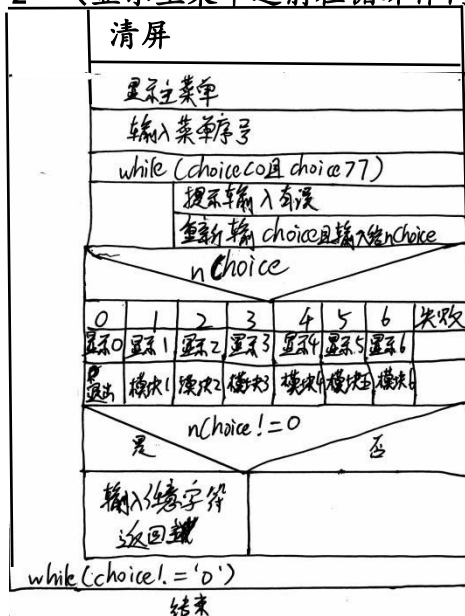 清屏
显示主菜单
输入菜单序号
while (choice<0且 choice>7)
提示输入有误
重新输 choice且输入给nChoice
nChoice
0 1 2 3 4 5 6 失败
显示0 显示1 显示2 显示3 显示4 显示5 显示6
退出 模块1 模块2 模块3 模块4 模块5 模块6
nChoice!=0
是 否
输入任意字符
返回
while(choice!='0')
结束